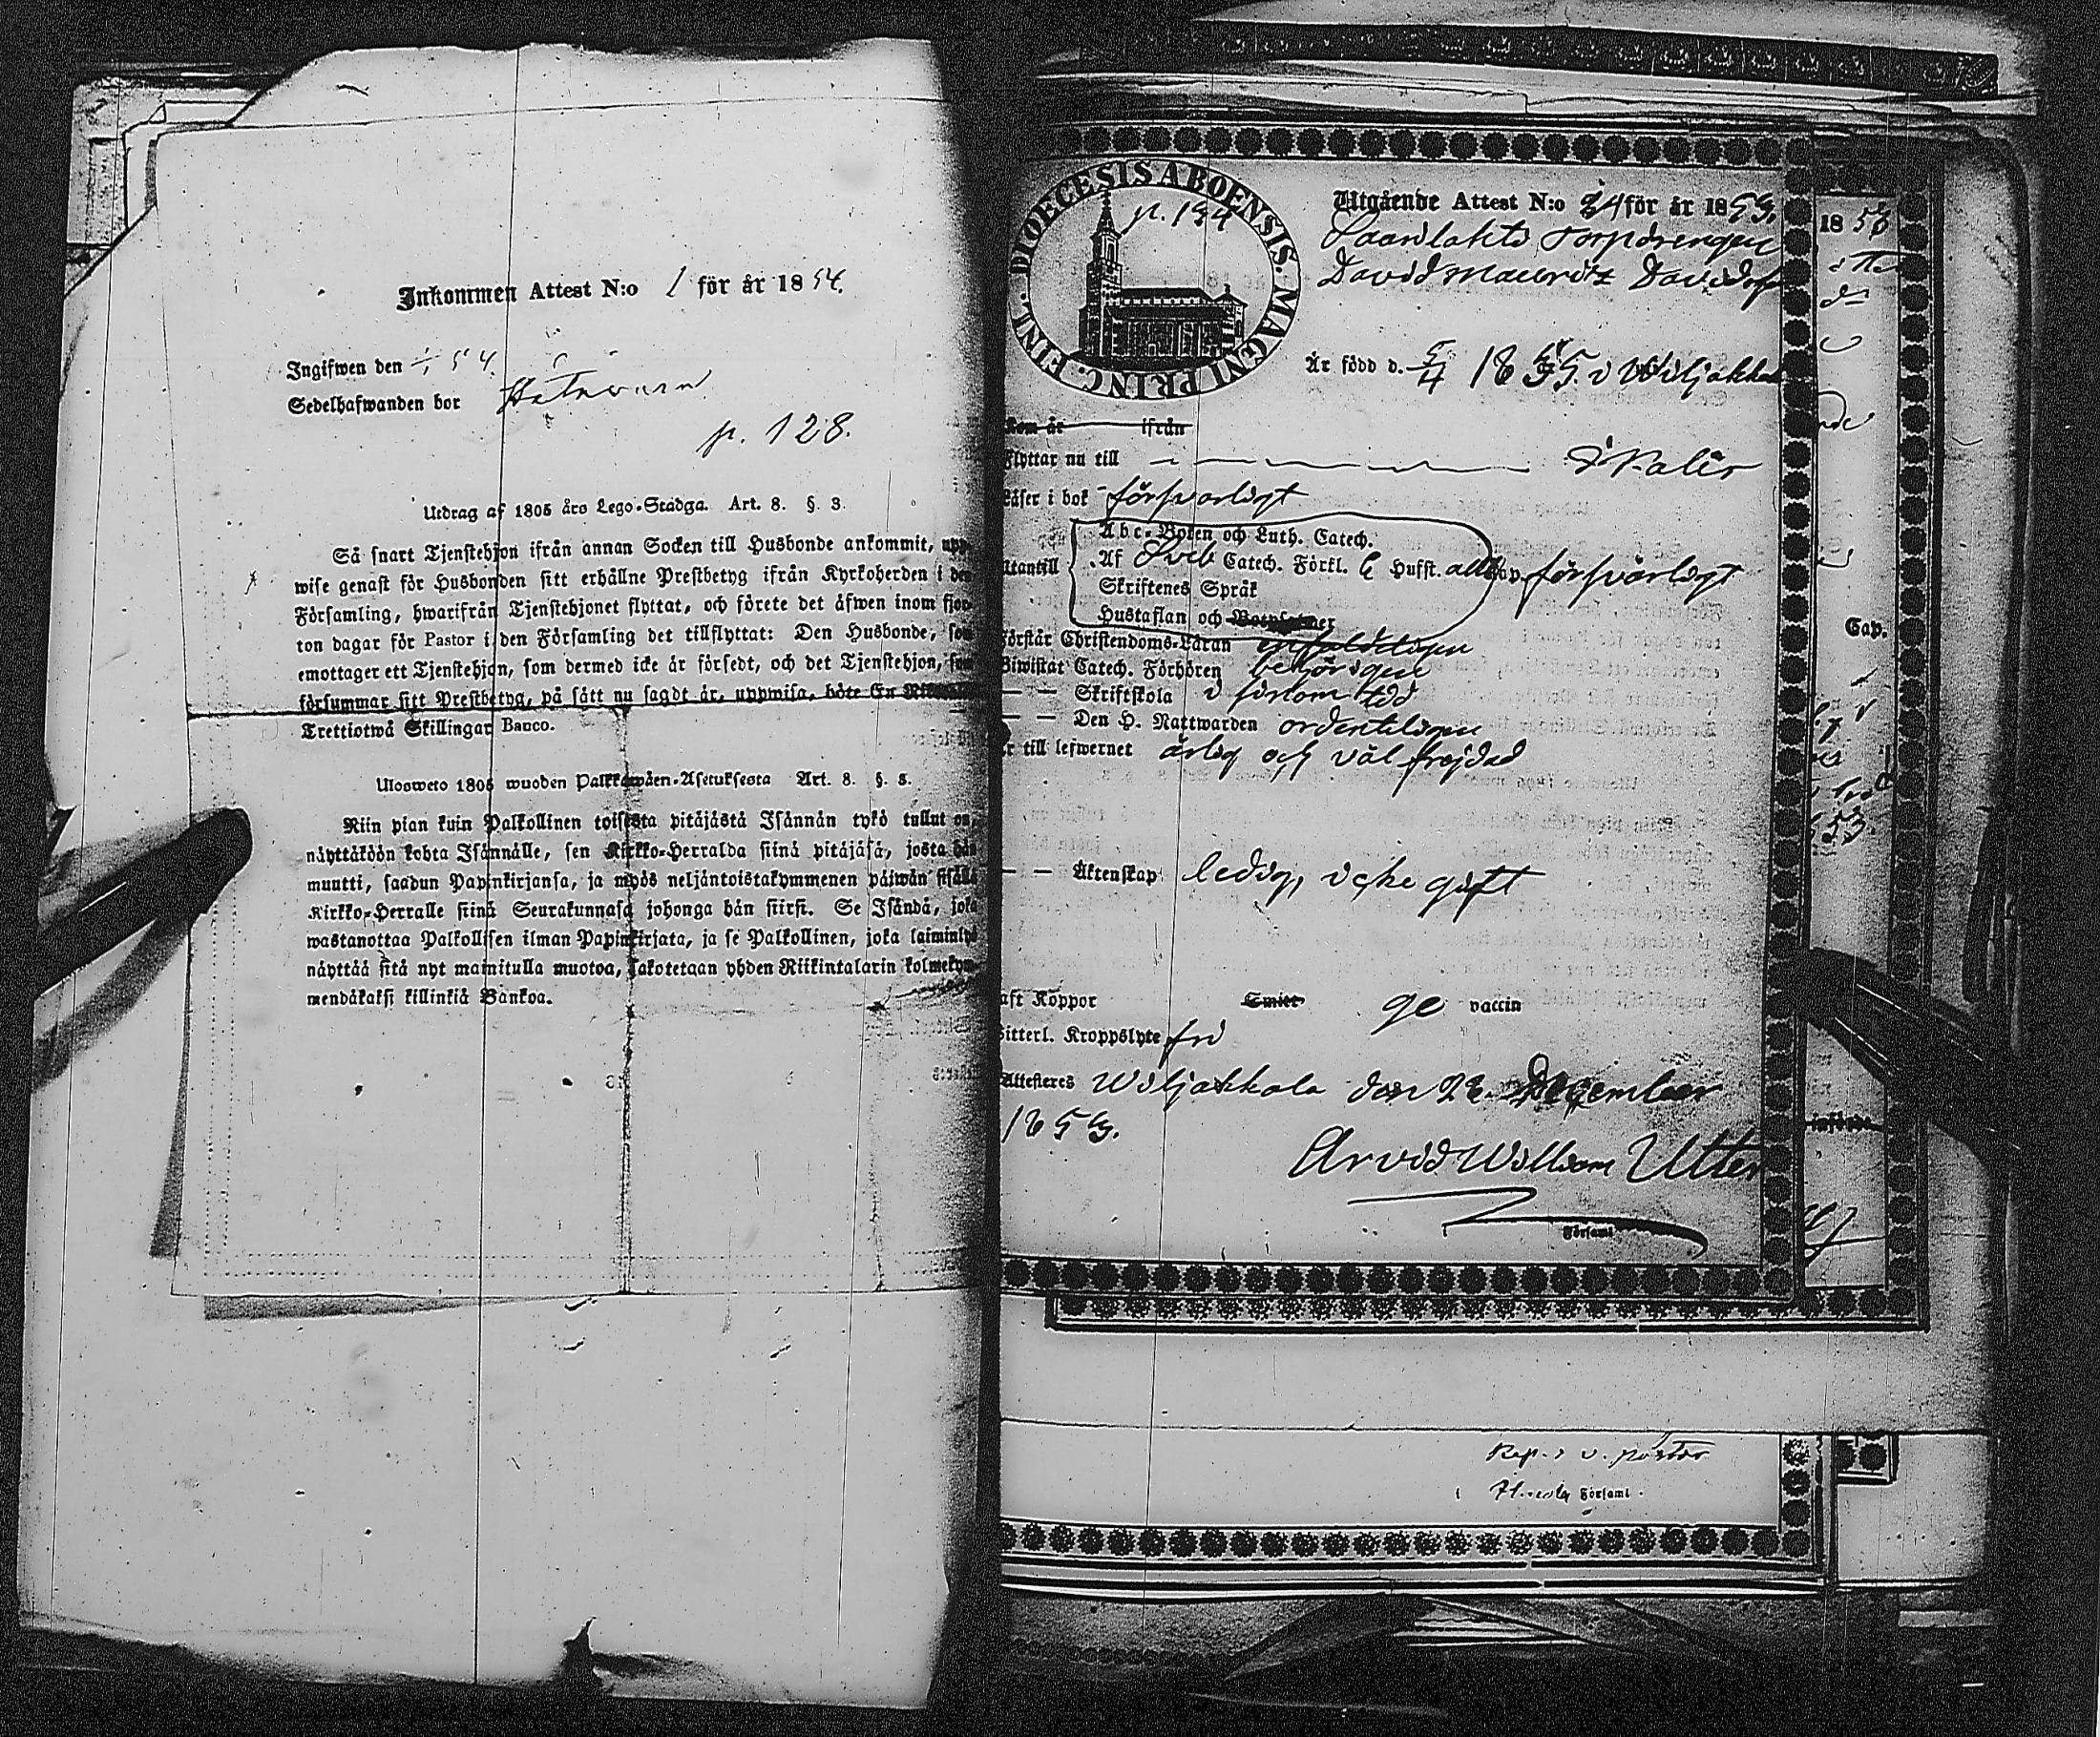 Inkommen Attest N:o 1 för år 1854.
Ingifwen den 54.
Sedelhafwanden bor
p. 128.
Utdrag af 1805 års Lego-Stadga. Art. 8. §. 3.
Så snart Tjenstehjon ifrån annan Socken till Husbonde ankommit, upp
wise genast för Husbonden sitt erhållne Prestbetyg ifrån Kyrkoherden i den
Församling, hwarifrån Tjenstehjonet flyttat, och förete det äfwen inom fjor
ton dagar för Pastor i den Församling det tillflyttat: Den Husbonde, som
emottager ett Tjenstehjon, som dermed icke är försedt, och det Tjenstehjon, som
försummar sitt Prestbetyg, på sätt nu sagdt är, uppwisa, böte En
Trettiotwå Skillingar Banco.
Ulosweto 1805 wuoden Palkkawäen-Asetuksesta Art. 8. §. 3.
Niin pian kuin Palkollinen toisesta pitäjästä Isännän tykö tullut on,
näyttäköön kohta Isännälle, sen Kirkko-Herralda siinä pitäjäsä, josta hän
muutti, saadun Papinkirjansa, ja myös neljäntoistakymmenen päiwän sisällä
Kirkko-Herralle siinä Seurakunnasa johonga hän siirsi. Se Isändä, joka
wastanottaa Palkollisen ilman Papinkirjata, ja se Palkollinen, joka laiminlyö
näyttää sitä nyt mainitulla muotoa, sakotetaan yhden Riikintalarin kolmekym-
mendäkaksi killinkiä Bankoa.
DIOECESIS ABOENSIS. MAGNI PRINC. FINL.
p. 134
Utgående Attest N:o 24 för år 1853.
Saarilahti Torpdrengen
David Mauritz Davidsf
Är född d. 5/4 1835 i Wiljakkala
Kom år ifrån
Flyttar nu till Ikalis
Läser i bok försvarligt
Abc-Boken och Luth. Catech.
Utantill Af Sveb Catech. Förkl. Hufst. all Cap. försvarligt
Skriftenes Språk
Hustaflan och
Förstår Christendoms-Läran enfaldeligen
Biwistat Catech. Förhören behörigen
— — Skriftskola i förlorn tid
— — Den H. Nattwarden ordenteligen
Är till lefwernet ärlig och väl frejdad
— — Äktenskap ledig, icke gift
Haft Koppor vaccin
Witterl. Kroppslyte fri
Attesteras Wiljakkala den 23. December
1853.
Arvid William Utter
Församl
1853
Cap.
v. pastor
i Församl.